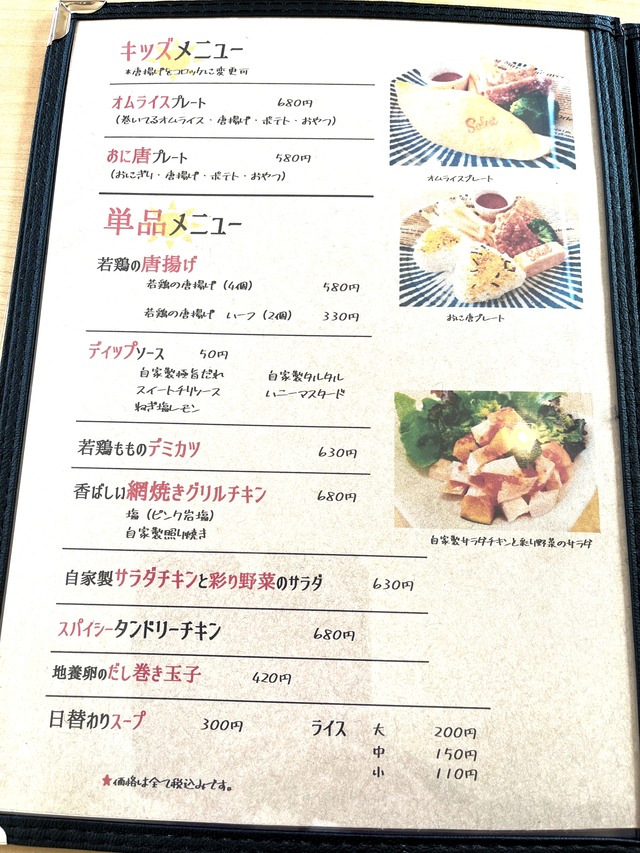 キッズメニュー
*唐揚げをコロッケに変更可
オムライスプレート 680円
(巻いてるオムライス・唐揚げ・ポテト・おやつ)
おに唐プレート 580円
(おにぎり・唐揚げ・ポテト・おやつ)
単品メニュー
若鶏の唐揚げ
若鶏の唐揚げ (4個) 580円
若鶏の唐揚げ ハーフ (2個) 330円
ディップソース 50円
自家製極旨だれ 自家製タルタル
スイートチリソース ハニーマスタード
ねぎ塩レモン
若鶏もものデミカツ 630円
香ばしい網焼きグリルチキン 680円
塩 (ピンク岩塩)
自家製照り焼き
自家製サラダチキンと彩り野菜のサラダ 630円
スパイシータンドリーチキン 680円
地養卵のだし巻き玉子 420円
日替わりスープ 300円
ライス 大 200円
中 150円
小 110円
★価格は全て税込みです。
オムライスプレート
おに唐プレート
自家製サラダチキンと彩り野菜のサラダ